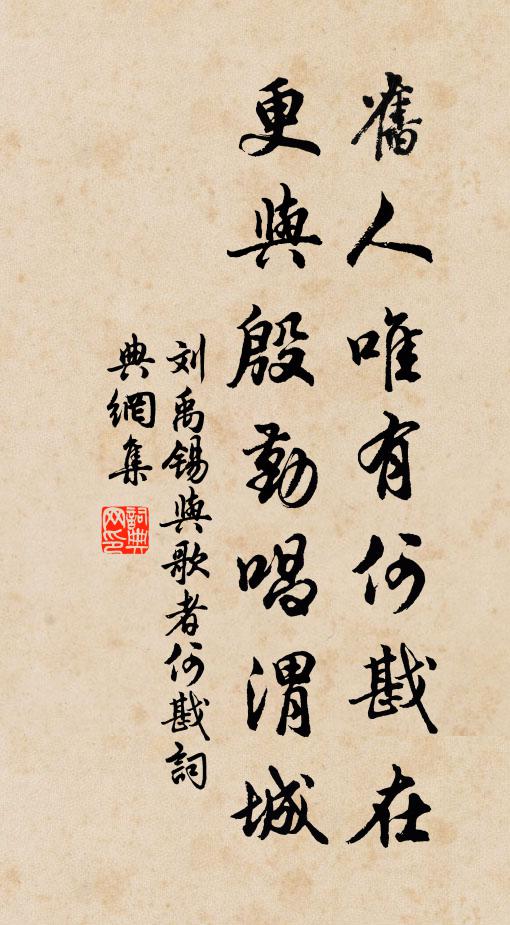 舊人唯有何戡在
更與殷勤唱渭城
刘禹锡與歌者何戡詞
典網集
詞典網印